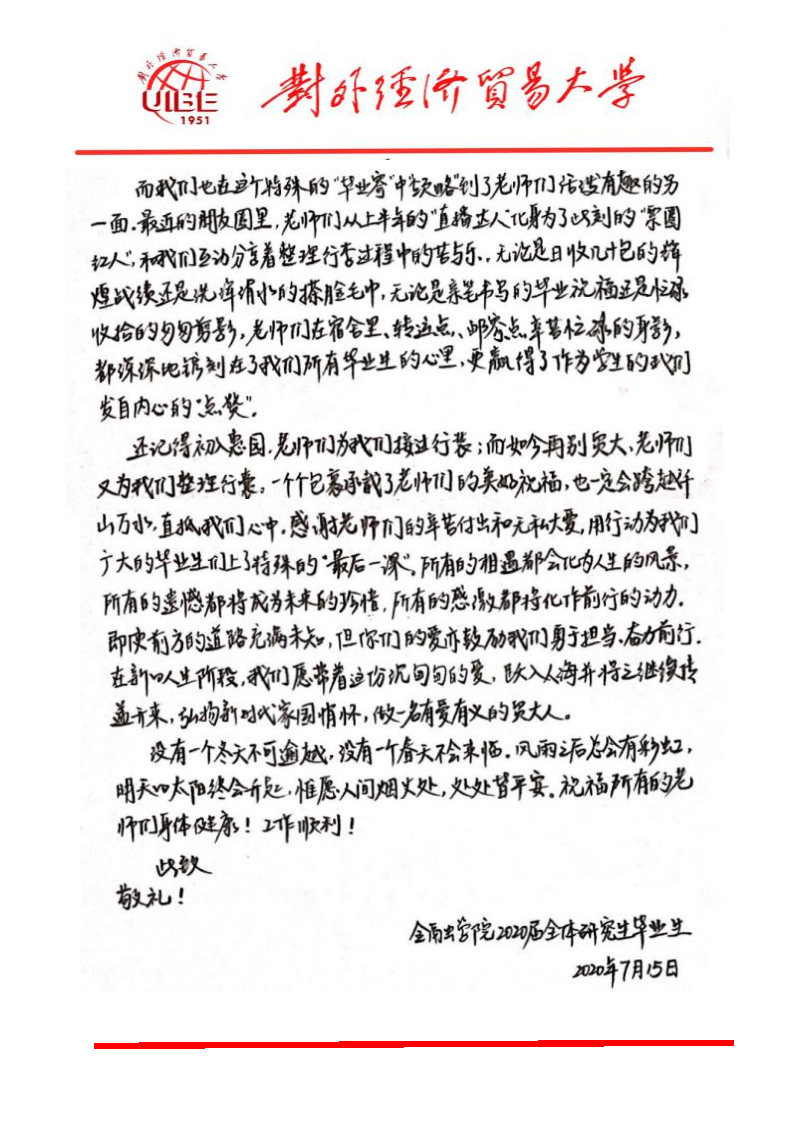 对外经济贸易大学
UIBE
1951
對外经济貿易大学
而我们也在这个特殊的“毕业季”中“领略”到了老师们活泼有趣的另
一面。最近的朋友圈里,老师们从上半年的“直播达人”化身为了此刻的“票圈
红人”,和我们互动分享着整理行李过程中的苦与乐。无论是日收几十包的辉
煌战绩还是洗净滑水的擦脸毛巾,无论是亲笔书写的毕业祝福还是忙碌
收拾的匆匆剪影,老师们在宿舍里、转运点、邮寄点辛苦忙碌的身影,
都深深地镌刻在了我们所有毕业生的心里,更赢得了作为学生的我们
发自内心的“点赞”。
还记得初入惠园,老师们为我们接过行装;而如今再别贸大,老师们
又为我们整理行囊。一个个包裹承载了老师们的美好祝福,也一定会跨越千
山万水,直抵我们心中。感谢老师们的辛苦付出和无私大爱,用行动为我们
广大的毕业生们上了特殊的“最后一课”。所有的相遇都会化为人生的风景,
所有的遗憾都将成为未来的珍惜,所有的感激都将化作前行的动力。
即使前方的道路充满未知,但你们的爱亦鼓励我们勇于担当、奋力前行。
在新的人生阶段,我们愿带着这份沉甸甸的爱,跃入人海并将之继续传
递开来,弘扬新时代家国情怀,做一名有爱有义的贸大人。
没有一个冬天不可逾越,没有一个春天不会来临。风雨之后总会有彩虹,
明天的太阳终会升起,惟愿人间烟火处,处处皆平安。祝福所有的老
师们身体健康!工作顺利!
此致
敬礼!
金融学院2020届全体研究生毕业生
2020年7月15日